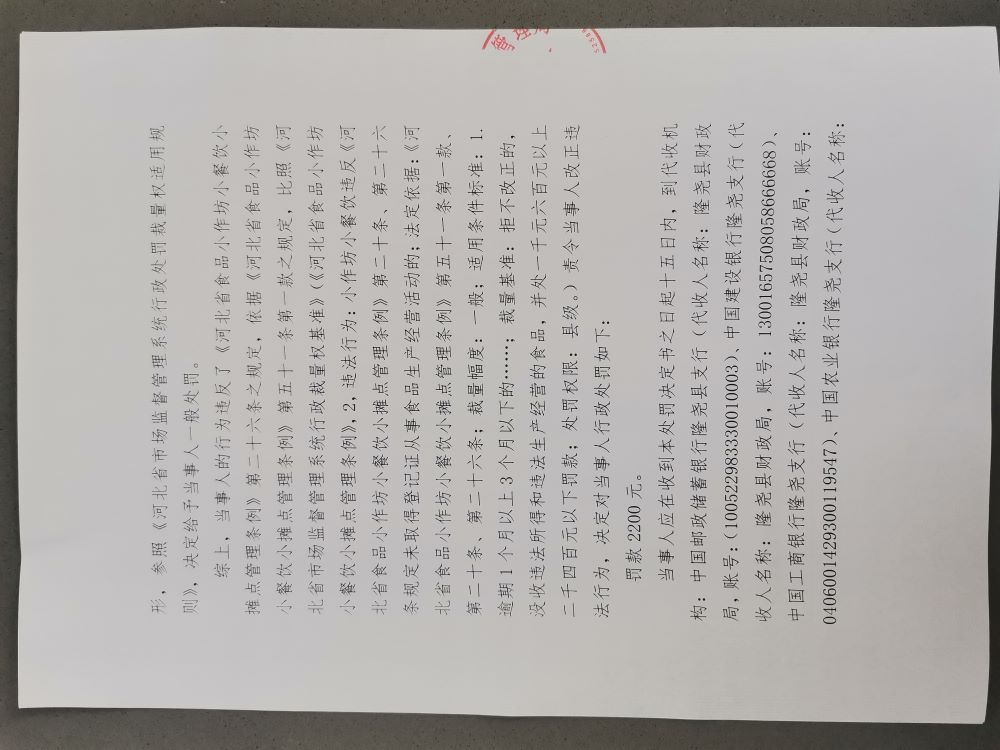 形，参照《河北省市场监督管理系统行政处罚裁量权适用规
则》，决定给予当事人一般处罚。
综上，当事人的行为违反了《河北省食品小作坊小餐饮小
摊点管理条例》第二十六条之规定，依据《河北省食品小作坊
小餐饮小摊点管理条例》第五十一条第一款之规定，比照《河
北省市场监督管理系统行政裁量权基准》（《河北省食品小作坊
小餐饮小摊点管理条例》，2，违法行为：小作坊小餐饮违反《河
北省食品小作坊小餐饮小摊点管理条例》第二十条、第二十六
条规定未取得登记证从事食品生产经营活动的；法定依据：《河
北省食品小作坊小餐饮小摊点管理条例》第五十一条第一款、
第二十条、第二十六条；裁量幅度：一般；适用条件标准：1.
逾期1个月以上3个月以下的……；裁量基准：拒不改正的，
没收违法所得和违法生产经营的食品，并处一千元六百元以上
二千四百元以下罚款；处罚权限：县级。）责令当事人改正违
法行为，决定对当事人行政处罚如下：
罚款2200元。
当事人应在收到本处罚决定书之日起十五日内，到代收机
构：中国邮政储蓄银行隆尧县支行（代收人名称：隆尧县财政
局，账号：（100522983330010003）、中国建设银行隆尧支行（代
收人名称：隆尧县财政局，账号：13001657508058666668）、
中国工商银行隆尧支行（代收人名称：隆尧县财政局，账号：
0406001429300119547）、中国农业银行隆尧支行（代收人名称：
管理局